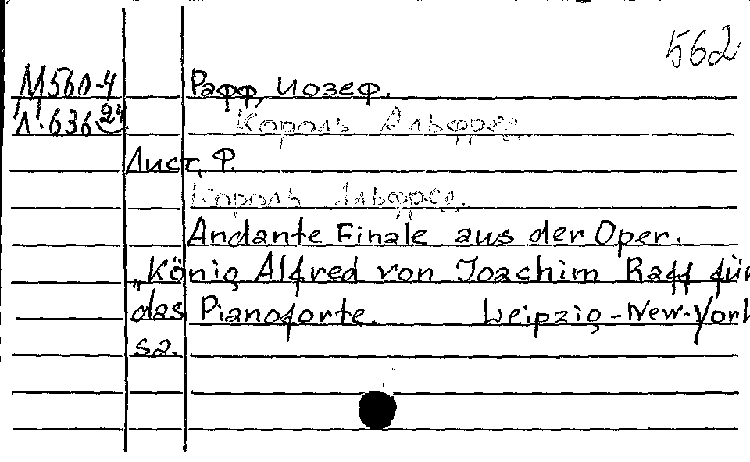 562
М560-4 Рафф, Иозеф.
Л 636 Король Альфред.
Лист, Ф.
Король Альфред.
Andante Finale aus der Oper.
„König Alfred von Joachim Raff für
das Pianoforte. Leipzig-New-York
sa.